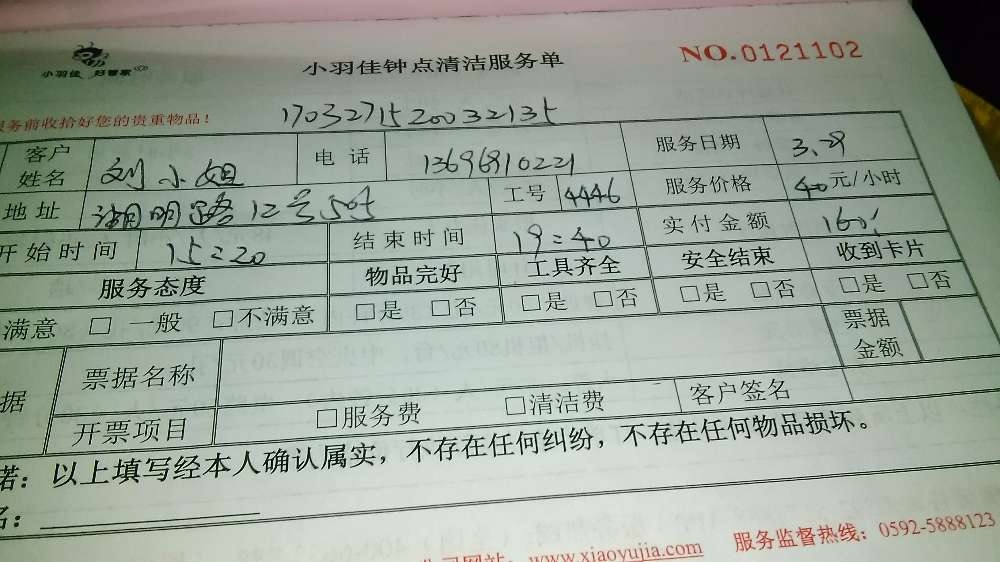 小羽佳 好管家
小羽佳钟点清洁服务单
NO.0121102
服务前收拾好您的贵重物品！
170327152003 2135
客户姓名 刘小姐 电话 13696910221 服务日期 3.29
地址 湖明路12号 工号 4446 服务价格 40元/小时
开始时间 15:20 结束时间 19:40 实付金额 160
服务态度 物品完好 工具齐全 安全结束 收到卡片
满意 □ 一般 □不满意 □是 □否 □是 □否 □是 □否 □是 □否
据 票据名称 票据金额
开票项目 □服务费 □清洁费 客户签名
诺：以上填写经本人确认属实，不存在任何纠纷，不存在任何物品损坏。
名：
网站：www.xiaoyujia.com 服务监督热线：0592-5888123